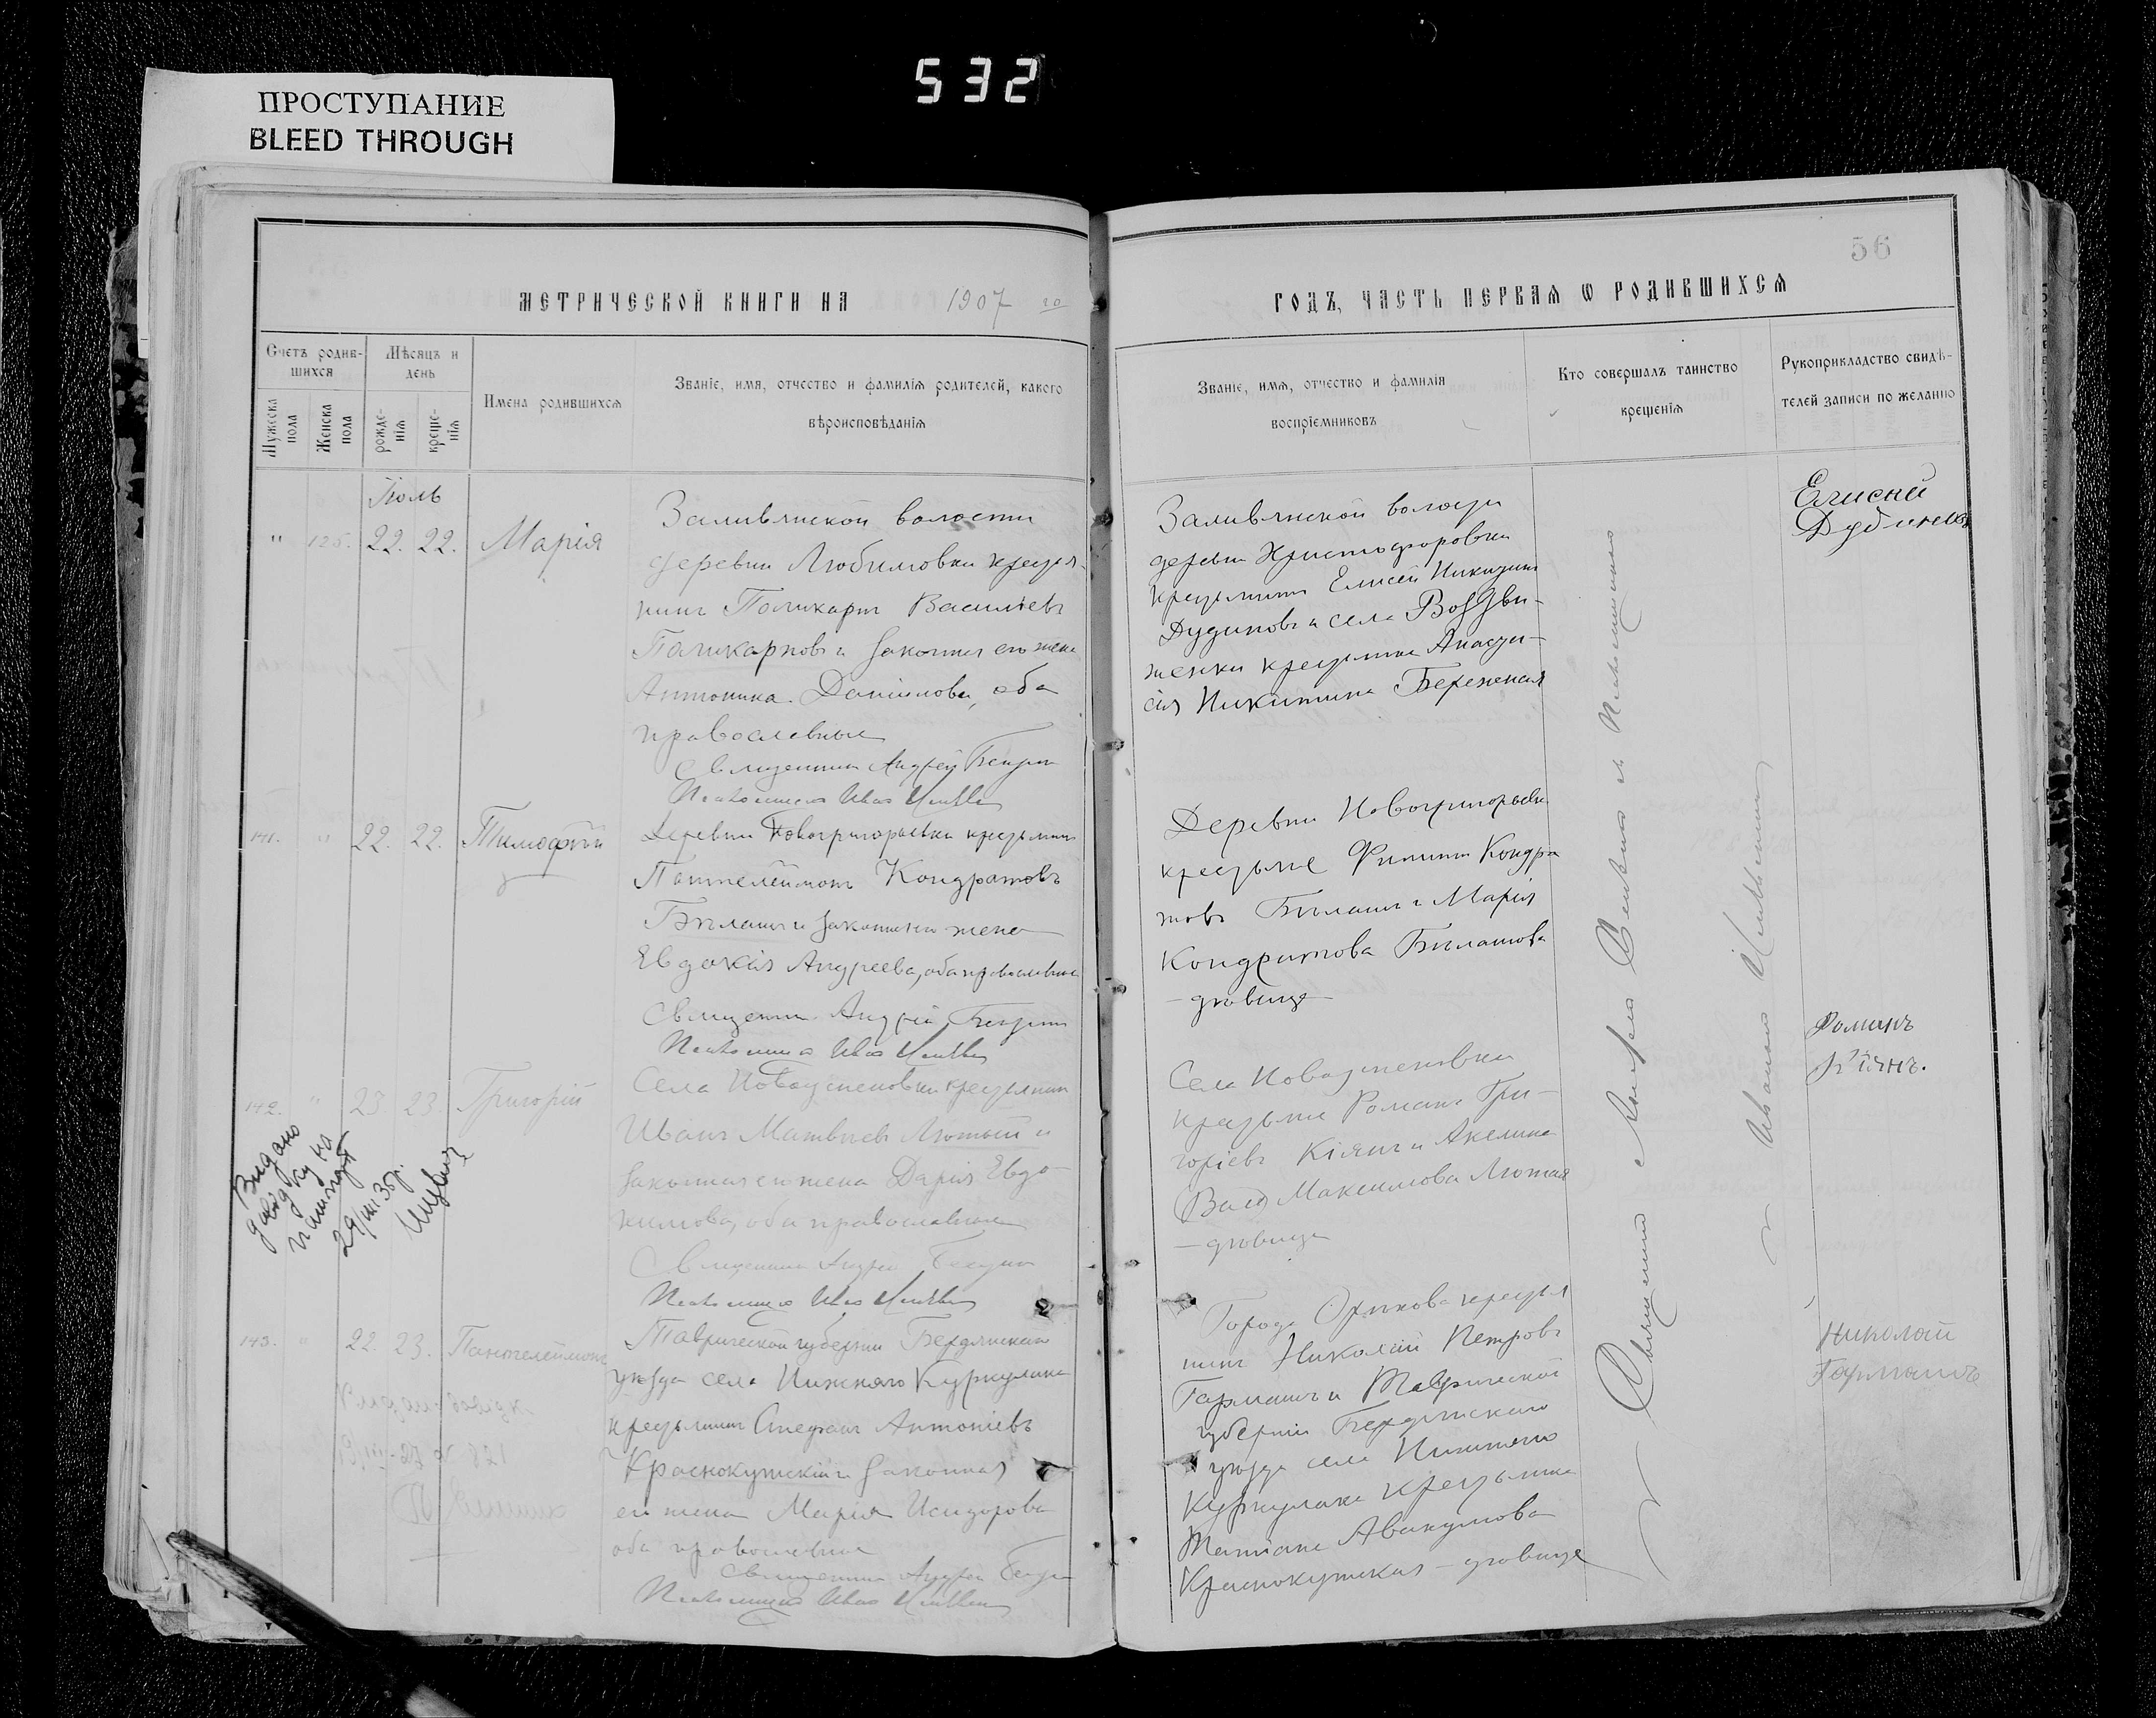 532
ПРОСТУПАНИЕ
BLEED THROUGH
56
МЕТРИЧЕСКОЙ КНИГИ НА 1907 го
ГОДЪ, ЧАСТЬ ПЕРВАЯ Ѡ РОДИВШИХСЯ
Счетъ родив-
шихся
Мужеска
пола
Женска
пола
Мѣсяцъ и
день
рожде-
нія
креще-
нія
Имена родившихся
Званіе, имя, отчество и фамилія родителей, какого
вѣроисповѣданія
Званіе, имя, отчество и фамилія
воспріемниковъ
Кто совершалъ таинство
крещенія
Рукоприкладство свидѣ-
телей записи по желанію
Іюль
" 125. 22. 22. Марія
Заливлнской волости
деревни Любимовки кресть-
нинъ Поликарпъ Васильевъ
Поликарповъ и законная его жена
Антонина Даніилова, оба
православные
Священникъ Андрей
Псаломщикъ Иванъ
Заливлнской волости
деревни Христофоровки
крестьянинъ Елисей Никитинъ
Дудиновъ и села Воздви-
женки крестьянка Анаста-
сія Никитина Бережная
Елисей
141. " 22. 22. Тимофѣй
Деревни Новогригорьевки крестьянинъ
Пантелеймонъ Кондратовъ
Бѣлашъ и законная жена
Евдокія Андреева, оба православные
Священникъ Андрей
Псаломщикъ Иванъ
Деревни Новогригорьевки
крестьяне Филиппъ Кондра
товъ Бѣлашъ и Марія
Кондратова Бѣлашова
- дѣвица
142. " 23. 23. Григорій
Села Новоуспеновки крестьянинъ
Иванъ Матвѣевъ Лютый и
законная его жена Дарія Евдо-
кимова, оба православные
Священникъ Андрей
Псаломщикъ Иванъ
Села Новоуспеновки
крестьяне Романъ Гри-
горіевъ Кіянъ и Акелина
Максимова Лютая
- дѣвица
Романъ
Кіянъ.
Видано
довідку на
29/III 35 р.
143. " 22. 23. Пантелеймонъ
Таврической губерніи Бердянскаго
уѣзда села Нижняго Куркулака
крестьянинъ Стефанъ Антоніевъ
Краснокутскій и законная
его жена Марія Исидорова
оба православные
Священникъ Андрей
Псаломщикъ Иванъ
Города Орѣхова крестья
нинъ Николай Петровъ
Гарманъ и Таврической
губерніи Бердянскаго
уѣзда села Нижняго
Куркулака крестьянка
Татіана Авакумова
Краснокутская - дѣвица
Николай
Священникъ